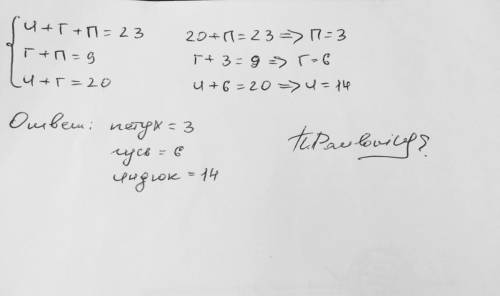 И+Г+П=23
Г+П=9
И+Г=20
20+П=23=>П=3
Г+3=9=>Г=6
И+6=20=>И=14
Ответ: петух=3
гусь=6
индюк=14